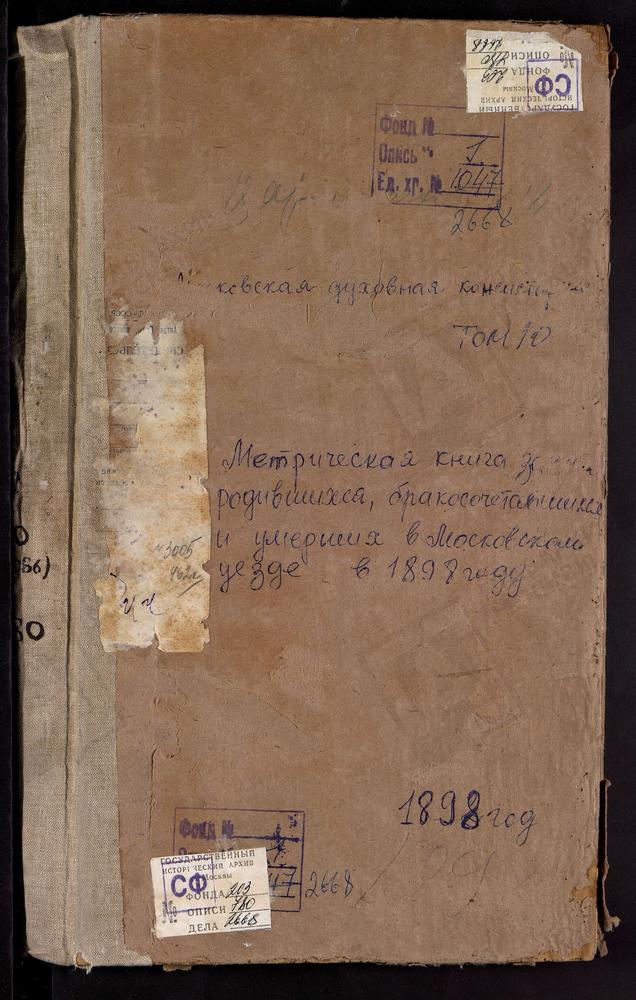 ГОСУДАРСТВЕННЫЙ
ИСТОРИЧЕСКИЙ АРХИВ
Москвы
СФ
ФОНДА 203
ОПИСИ 780
№
Фонд №
Опись " 1
Ед. хр. № 1047
2668
духовная
Том
Метрическая книга
родившихся, бракосочетавшихся
и умерших в Московском
уезде в 1898 году
№3005
462л
1898 год
Фонд №
47 2668
ГОСУДАРСТВЕННЫЙ
ИСТОРИЧЕСКИЙ АРХИВ
Москвы
СФ
ФОНДА 203
№ ОПИСИ 780
ДЕЛА 2668